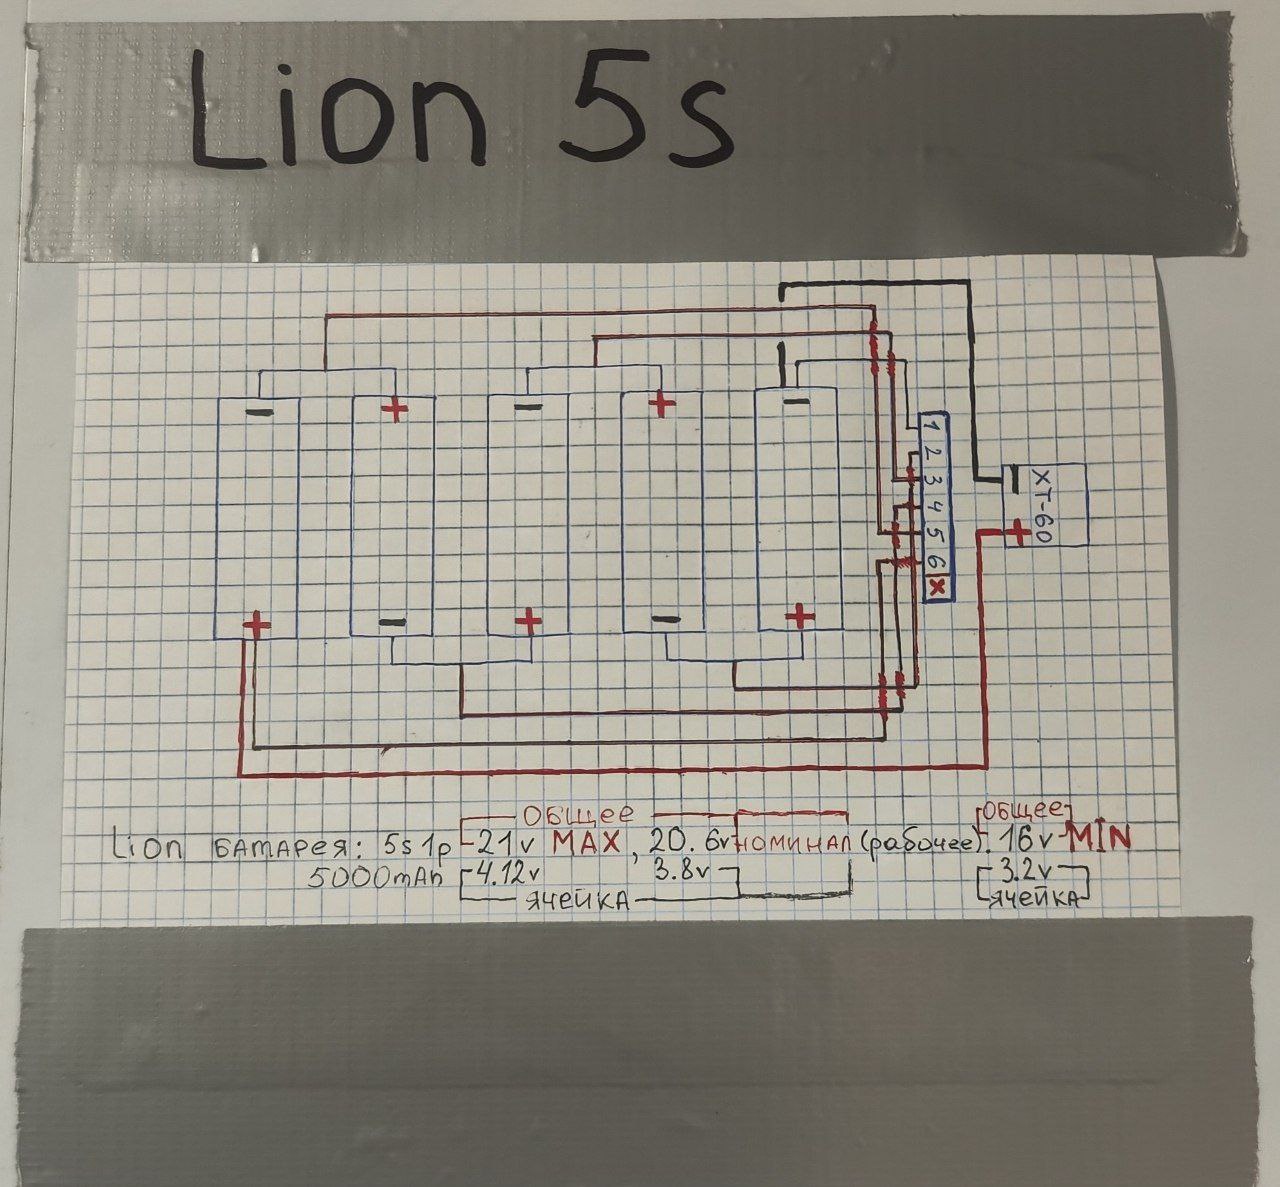 Lion 5s
− + − + −
+ − + − +
1
2
3
4
5
6
x
XT-60
− +
ОБЩЕЕ ОБЩЕЕ
Lion БАТАРЕЯ: 5s1p 21v MAX, 20.6v НОМИНАЛ (рабочее). 16v MIN
5000mAh 4.12v 3.8v 3.2v
ЯЧЕЙКА ЯЧЕЙКА